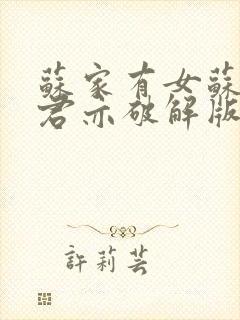 蘇家有女蘇
君亦破解版
許莉芸